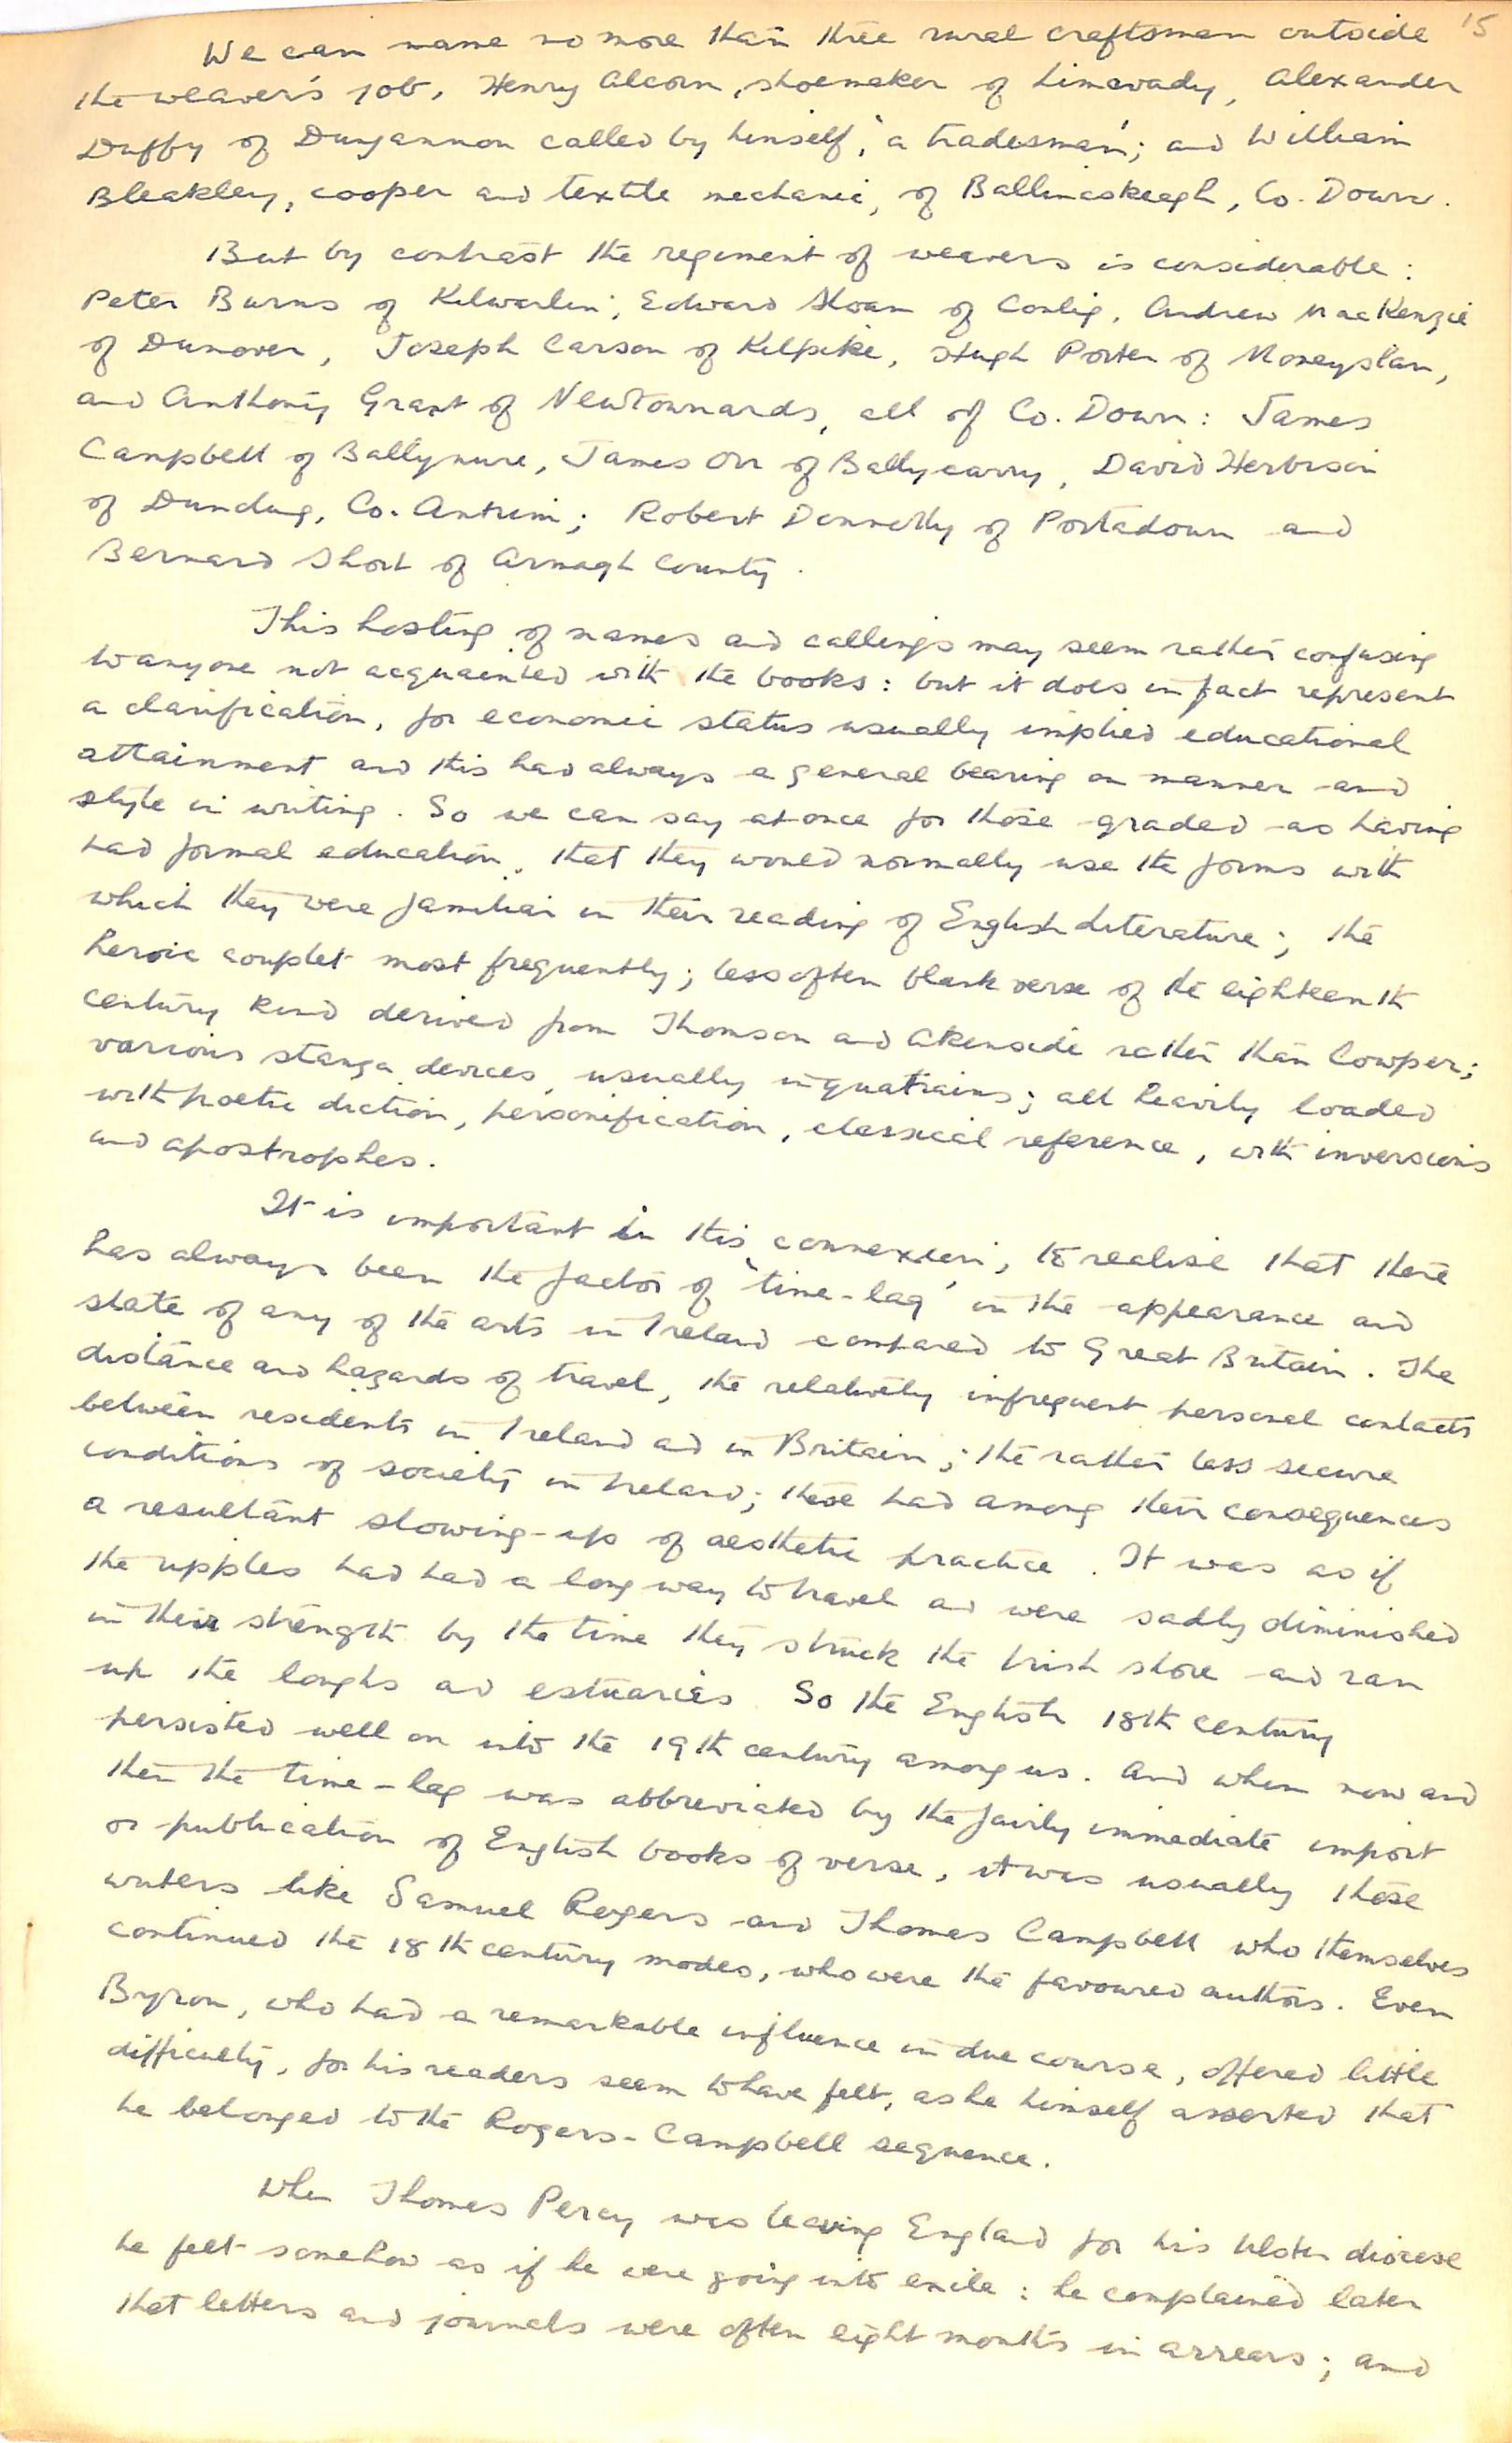 15
We can name no more than three rural craftsmen outside
the weaver's job, Henry Alcorn, shoemaker of Limavady, Alexander
Duffy of Dungannon called by himself, 'a tradesman'; and William
Bleakley, cooper and textile mechanic, of Ballinaskeagh, Co. Down.
But by contrast the regiment of weavers is considerable:
Peter Burns of Kilwarlin; Edward Sloan of Conlig, Andrew MacKenzie
of Dunover, Joseph Carson of Kilpike, Hugh Porter of Moneyslan,
and Anthony Grant of Newtownards, all of Co. Down: James
Campbell of Ballynure, James Orr of Ballycarry, David Herbison
of Dunclug, Co. Antrim; Robert Donnelly of Portadown and
Bernard Short of Armagh County.
This hosting of names and callings may seem rather confusing
to anyone not acquainted with the books: but it does in fact represent
a clarification, for economic status usually implied educational
attainment and this had always a general bearing on manner and
style in writing. So we can say at once for those graded as having
had formal education, that they would normally use the forms with
which they were familiar in their reading of English Literature; the
heroic couplet most frequently; less often blank verse of the eighteenth
century kind derived from Thomson and Akenside rather than Cowper;
various stanza devices, usually in quatrains; all heavily loaded
with poetic diction, personification, classical reference, with inversions
and apostrophes.
It is important in this connexion, to realise that there
has always been the factor of 'time-lag' in the appearance and
state of any of the arts in Ireland compared to Great Britain. The
distance and hazards of travel, the relatively infrequent personal contacts
between residents in Ireland and in Britain; the rather less secure
conditions of society in Ireland; these had among their consequences
a resultant slowing-up of aesthetic practice. It was as if
the ripples had had a long way to travel and were sadly diminished
in their strength by the time they struck the Irish shore and ran
up the loughs and estuaries. So the English 18th century
persisted well on into the 19th century among us. And when now and
then the time-lag was abbreviated by the fairly immediate import
or publication of English books of verse, it was usually those
writers like Samuel Rogers and Thomas Campbell who themselves
continued the 18th century modes, who were the favoured authors. Even
Byron, who had a remarkable influence in due course, offered little
difficulty, for his readers seem to have felt, as he himself asserted that
he belonged to the Rogers-Campbell sequence.
When Thomas Percy was leaving England for his Ulster diocese
he felt somehow as if he were going into exile: he complained later
that letters and journals were often eight months in arrears; and